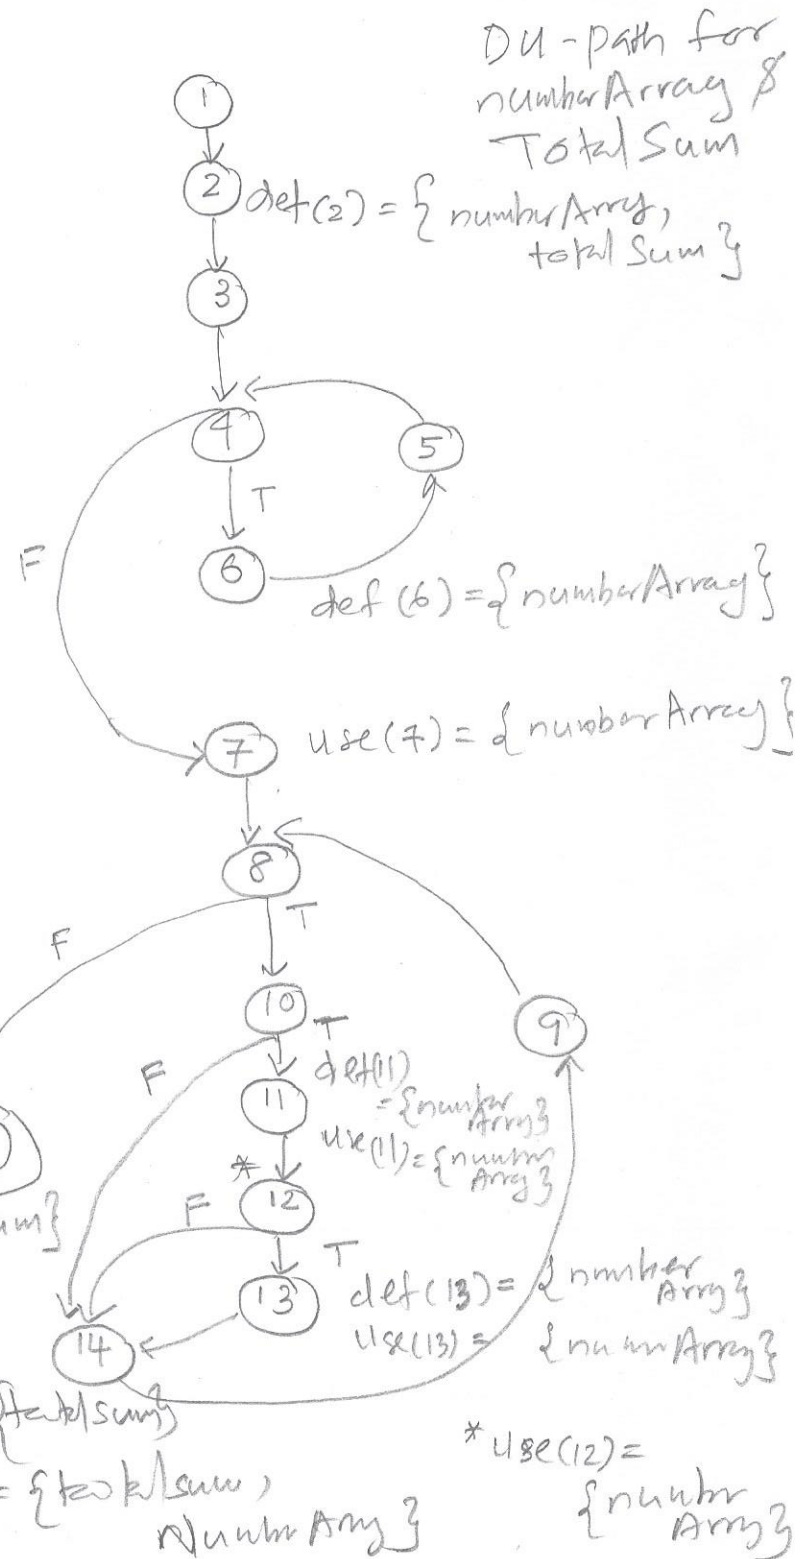 DU-path for
numberArray &
Total Sum
1
2
def(2) = { numberArry,
total Sum }
3
4
5
T
F
6
def (6) = {numberArray}
7
use(7) = {numberArray}
8
T
F
10
T
9
F
def(11)
={number
Array}
11
use(11)={numbr
Arry}
*
12
F
um}
T
13
def(13) = {number
Arry}
use(13) = {numbrArray}
14
{totalsum}
* use(12) =
= {totalsum,
{numbr
Arry}
NumbrArry}